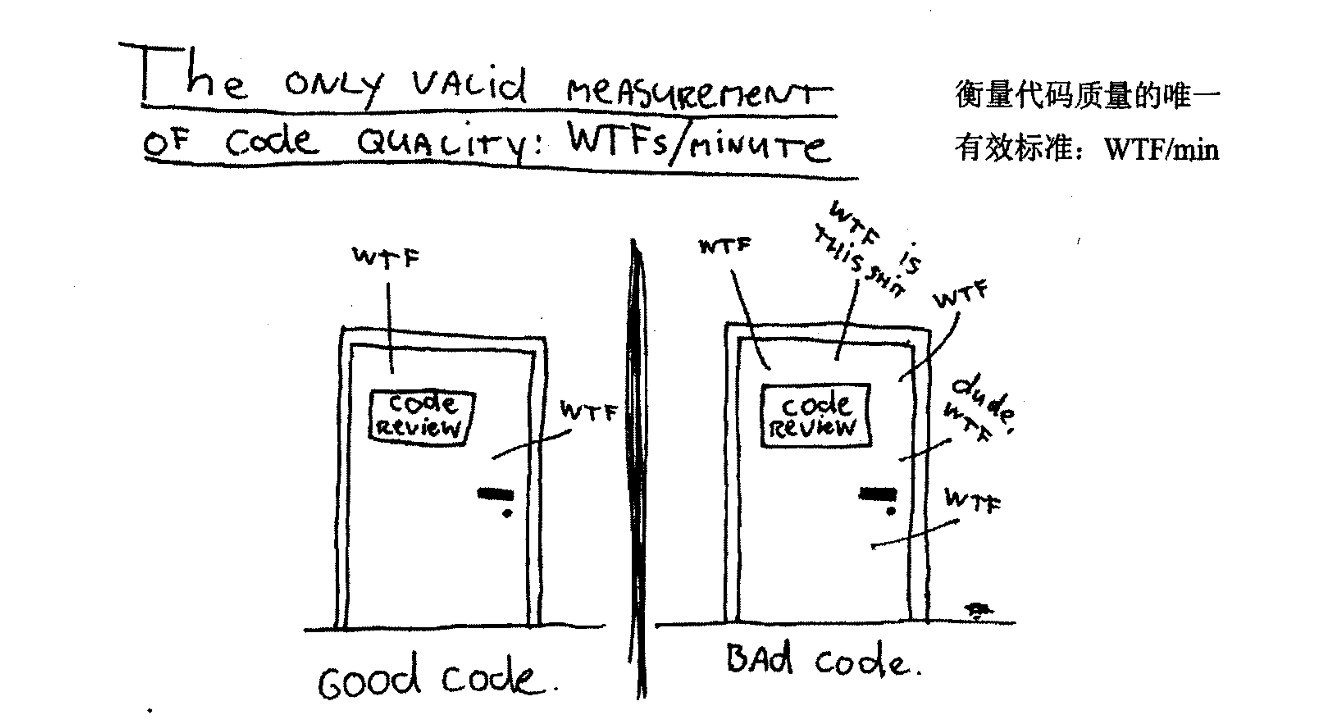 The ONLY VALid MEASUREMENT
OF Code QUALITY: WTFs/MINUTE
衡量代码质量的唯一
有效标准：WTF/min
WTF
code
REVIEW
WTF
GOOD CODE.
WTF
WTF is
THIS SHIT
WTF
code
REVIEW
dude,
WTF
WTF
BAD CODE.